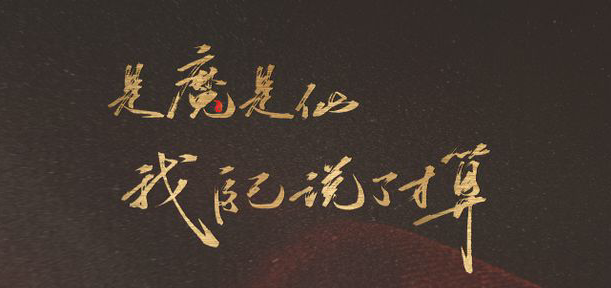 是魔是仙
我自己说了才算